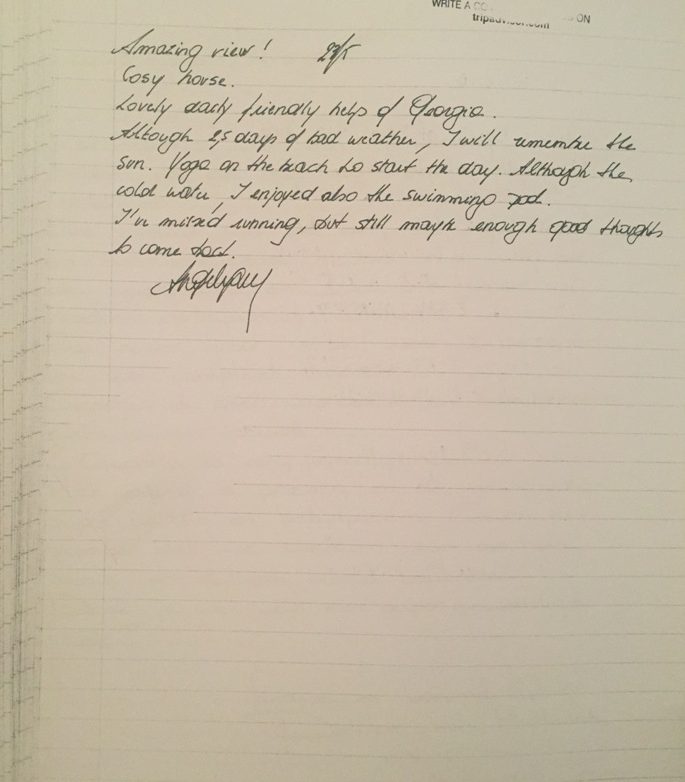 WRITE A CO ON
tripadvisor.com
Amazing view! 23/5
Cosy house.
Lovely daily friendly helps of Georgia.
Although 2,5 days of bad weather, I will remember the
sun. Yoga on the beach to start the day. Although the
cold water, I enjoyed also the swimming pool.
I've missed running, but still maybe enough good thoughts
to come back.